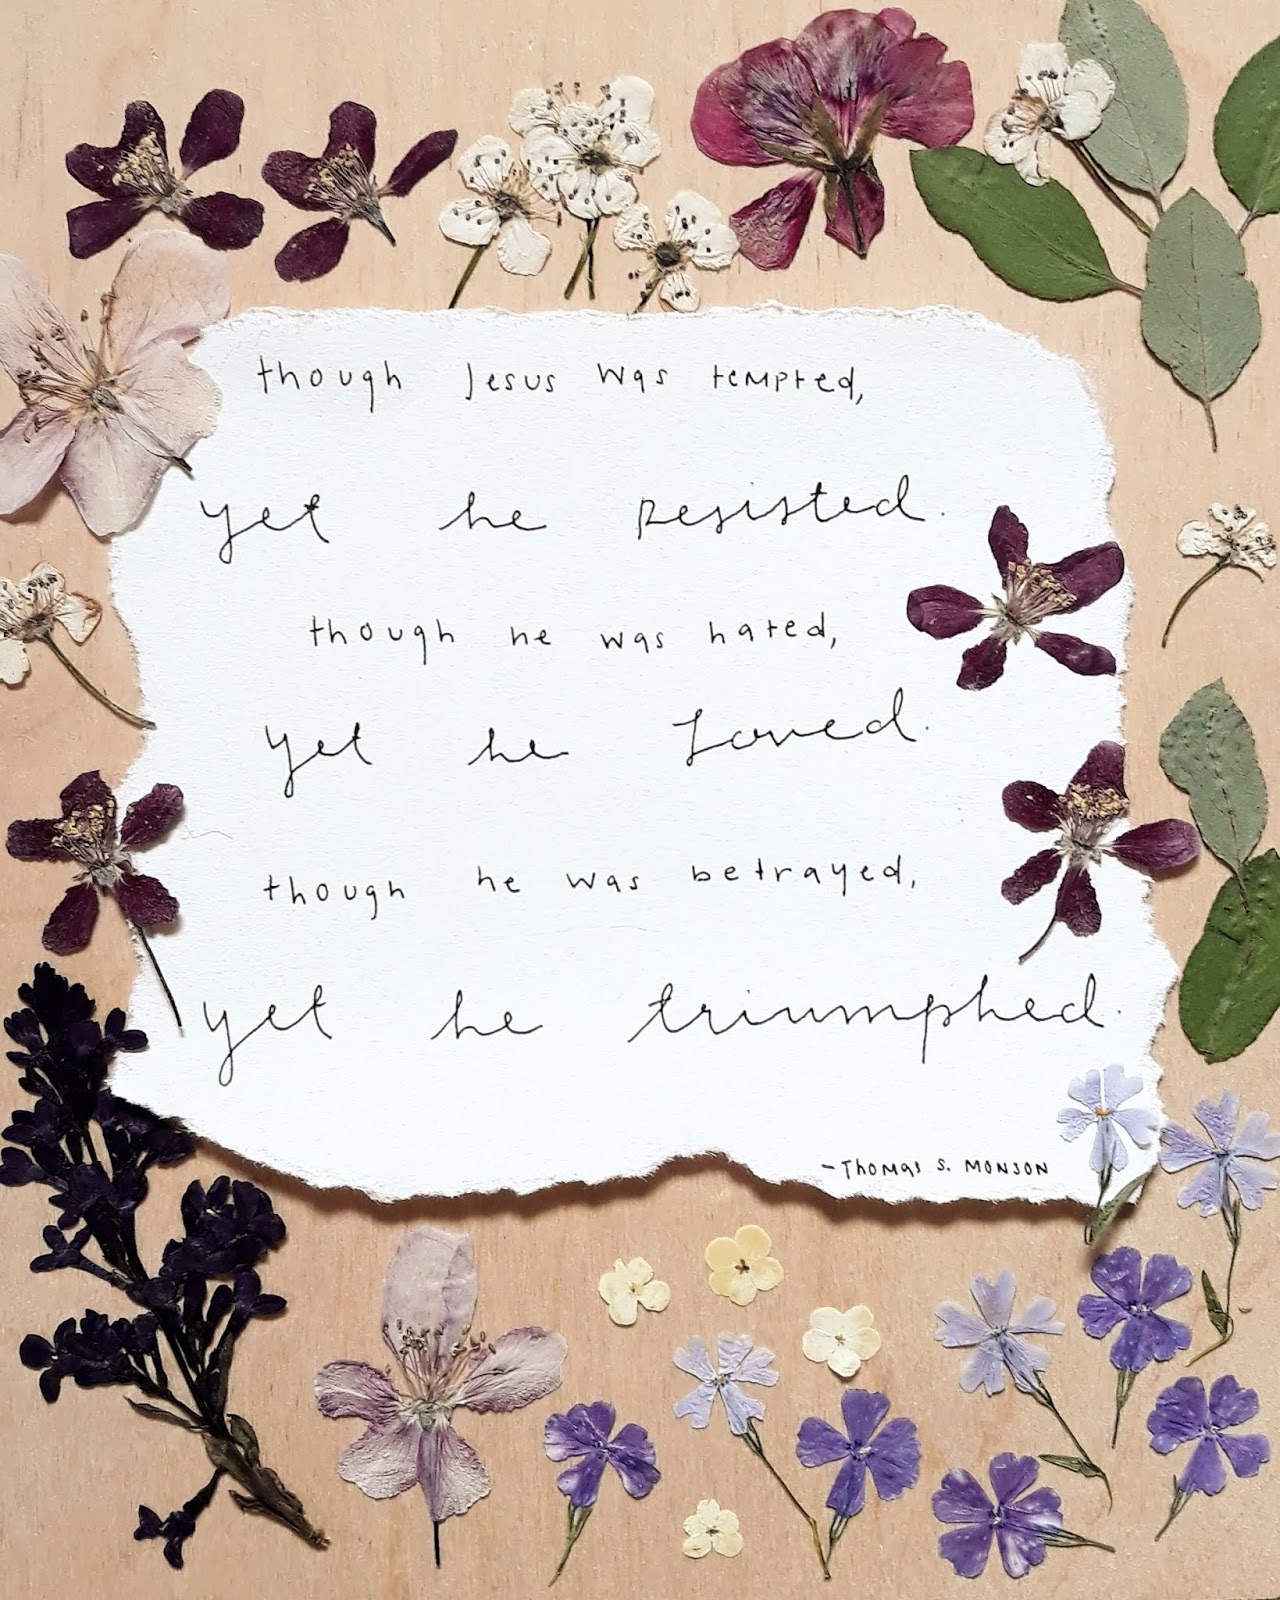 though Jesus was tempted,
yet he resisted.
though he was hated,
yet he loved.
though he was betrayed,
yet he triumphed.
-Thomas S. Monson